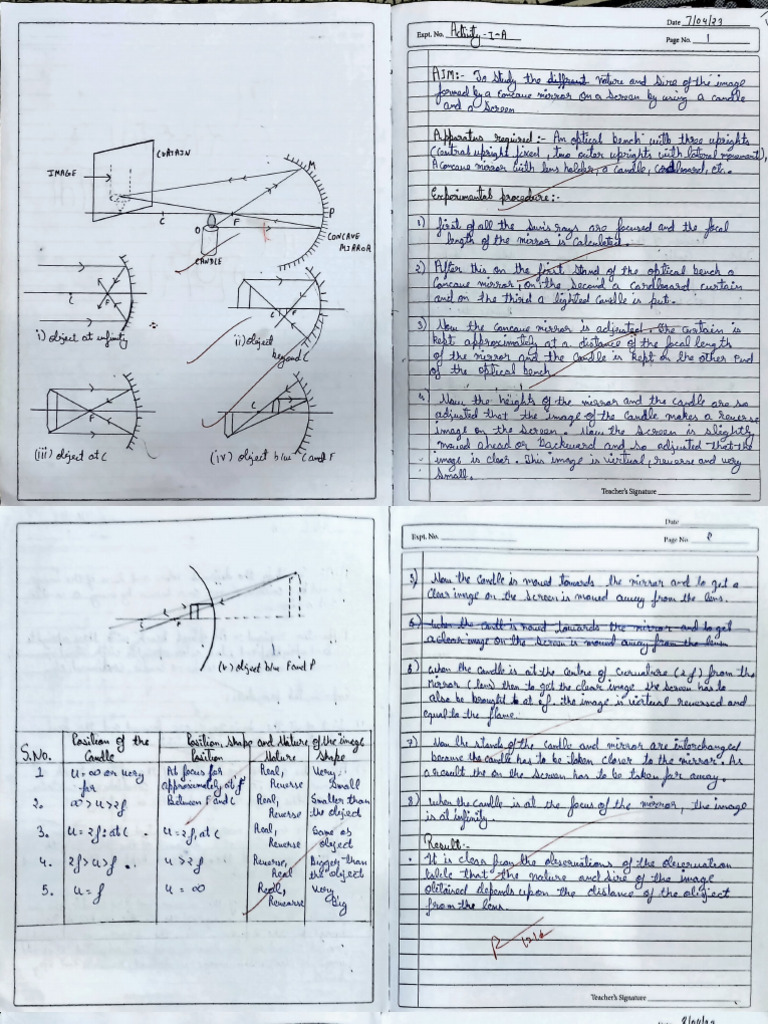 Date 7/04/23
Expt. No. Activity-I-A
Page No. 1
AIM:- To study the different nature and size of the image
formed by a concave mirror on a screen by using a candle
and a screen
Apparatus required:- An optical bench with three uprights
(central upright fixed, two outer uprights with lateral movement),
A concave mirror with lens holder, a candle, cardboard, etc.
Experimental procedure:-
1) first of all the sun's rays are focused and the focal
length of the mirror is calculated.
2) After this on the first stand of the optical bench a
concave mirror, on the second a cardboard curtain
and on the third a lighted candle is put.
3) Now the concave mirror is adjusted. The curtain is
kept approximately at a distance of the focal length
of the mirror and the candle is kept on the other end
of the optical bench
4) Now the heights of the mirror and the candle are so
adjusted that the image of the candle makes a reverse
image on the screen. Now the screen is slightly
moved ahead or backward and so adjusted that the
image is clear. This image is virtual, reverse and very
small.
Teacher's Signature
CURTAIN
IMAGE
M
P
C
F
O
CANDLE
CONCAVE
MIRROR
C
F
F
i) object at infinity
C F
ii) object
beyond C
F
(iii) object at C
C
(iv) object b/w C and F
(v) object b/w F and P
S.No.
Position of the
Candle
Position, shape and Nature of the image
Position
Nature
Shape
1
u = ∞ or very
far
At focus for
approximately at f
Real,
Reverse
Very
Small
2.
∞ > u > 2f
Between F and C
Real,
Reverse
Smaller than
the object
3.
u = 2f: at C.
u = 2f, at C
Real,
Reverse
Same as
object
4.
2f > u > f.
u > 2f
Reverse,
Real
Bigger than
the object
5.
u = f
u = ∞
Real,
Reverse
Very
Big
Date
Expt. No.
Page No. 2
5) Now the candle is moved towards the mirror and to get a
clear image on the screen is moved away from the lens.
6) When the candle is moved towards the mirror and to get
a clear image on the screen is moved away from the lens
6) When the candle is at the centre of curvature (2f) from the
mirror (lens) then to get the clear image the screen has to
also be brought to at 2f. the image is virtual reversed and
equal to the flame.
7) Now the stands of the candle and mirror are interchanged
because the candle has to be taken closer to the mirror. As
a result the on the screen has to be taken far away.
8) When the candle is at the focus of the mirror, the image
is at infinity.
Result:-
It is clear from the observations of the observation
table that the nature and size of the image
obtained depends upon the distance of the object
from the lens.
Teacher's Signature